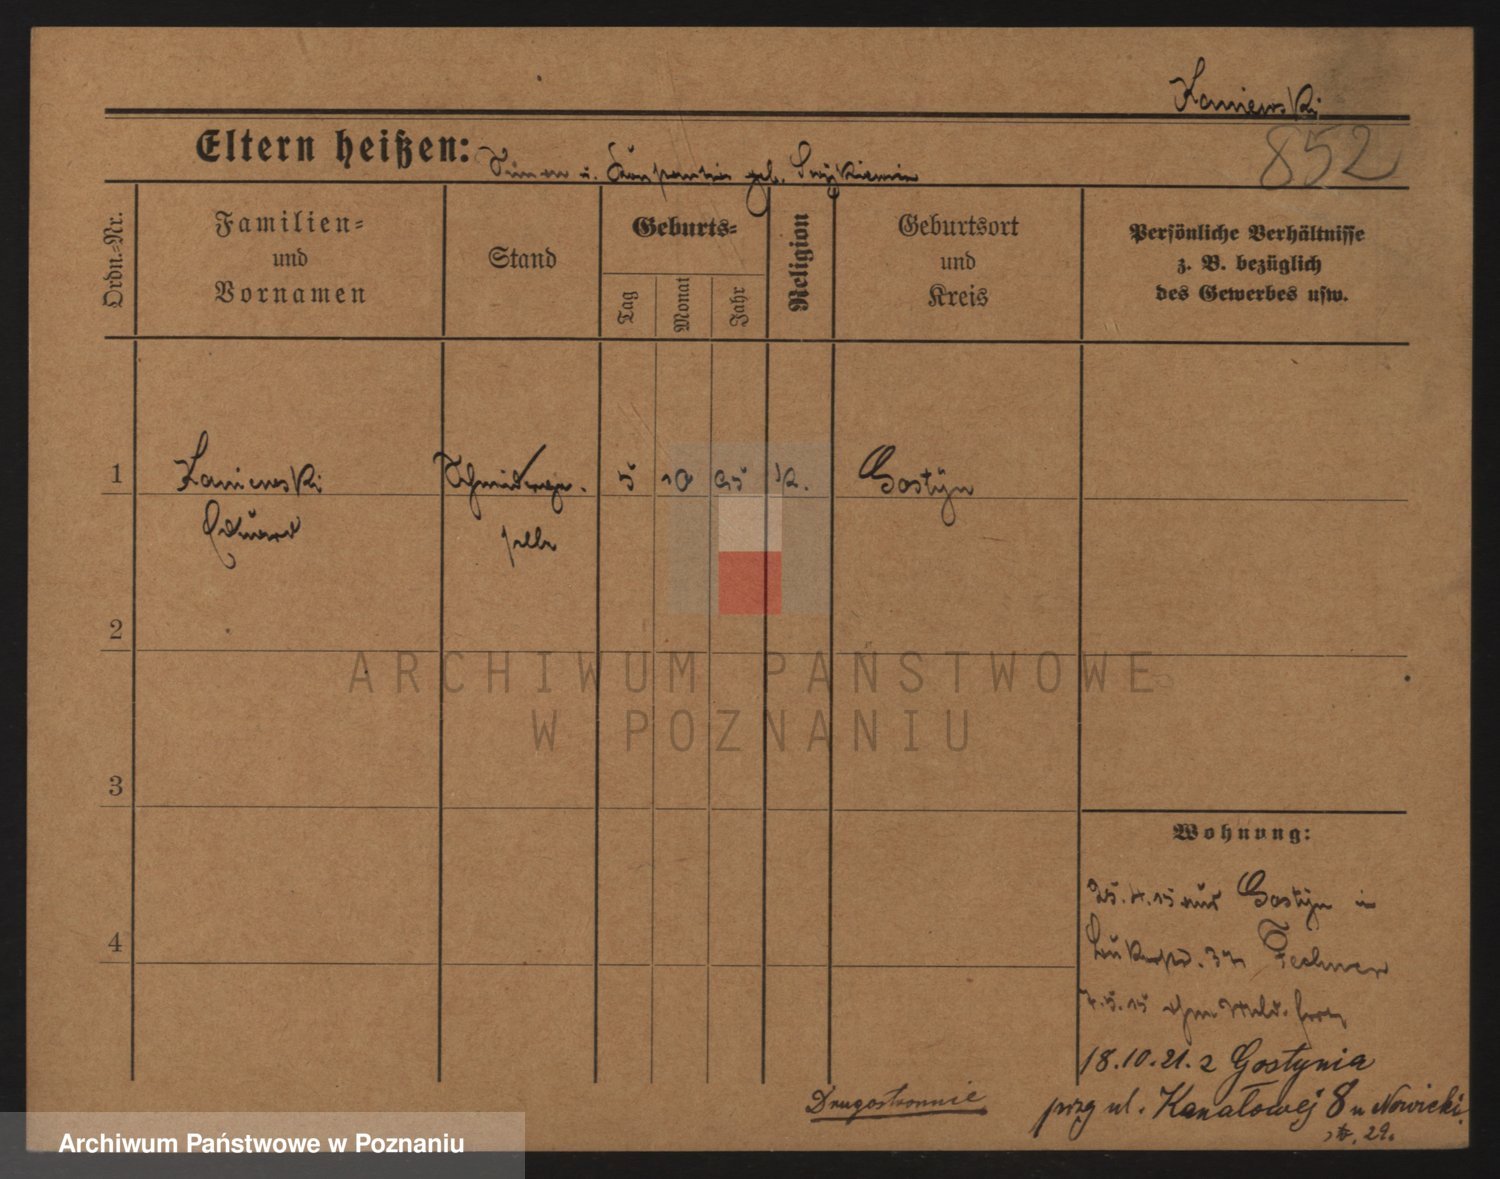 Kaniewski
852
Eltern heißen: Simon u. geb.
Ordn.-Nr.
Familien-
und
Vornamen
Stand
Geburts-
Tag
Monat
Jahr
Religion
Geburtsort
und
Kreis
Persönliche Verhältnisse
z. B. bezüglich
des Gewerbes usw.
1
Kaniewski
Eduard
5 10 95 K.
Gostyn
2
3
4
Wohnung:
25.4.15 aus Gostyn in
37
7.5.15
18.10.21. z Gostynia
ul. Kanałowej 8 u Nowicki
29.
Drugostronnie
ARCHIWUM PAŃSTWOWE
W POZNANIU
Archiwum Państwowe w Poznaniu